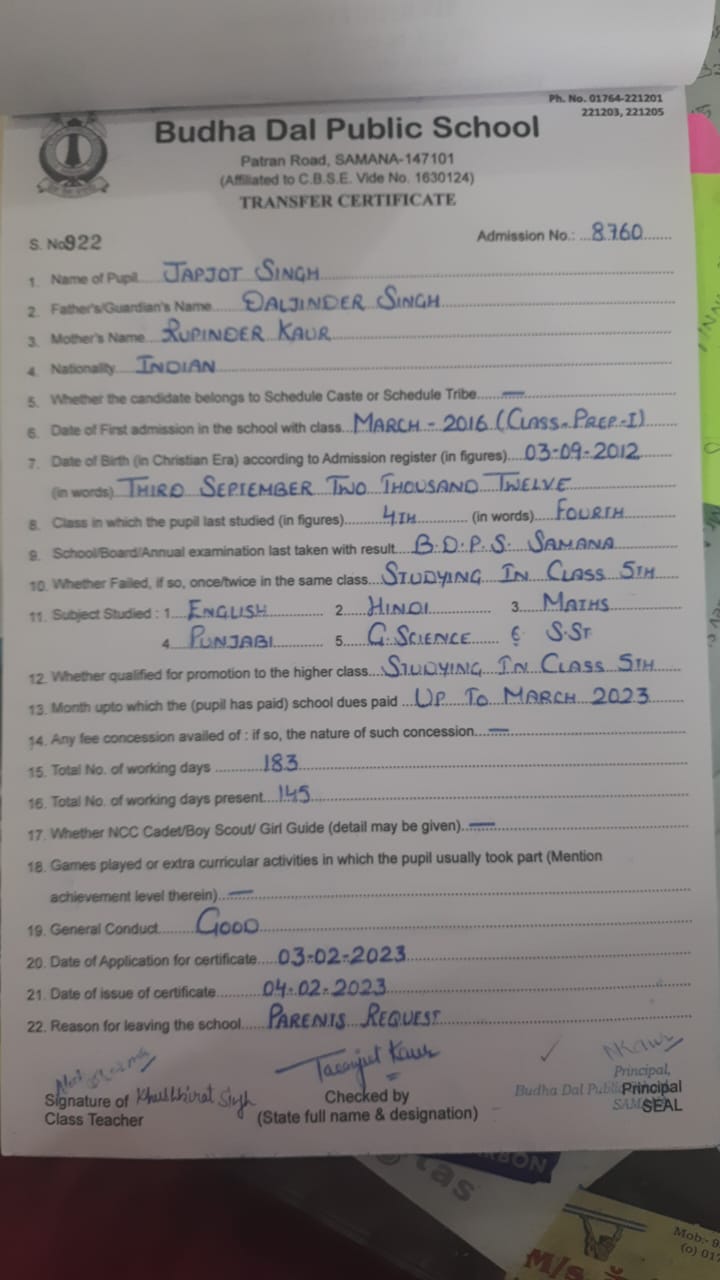 Ph. No. 01764-221201
221203, 221205
Budha Dal Public School
Patran Road, SAMANA-147101
(Affiliated to C.B.S.E. Vide No. 1630124)
TRANSFER CERTIFICATE
S. No922 Admission No.: 8760
1. Name of Pupil JAPJOT SINGH
2. Father's/Guardian's Name DALJINDER SINGH
3. Mother's Name RUPINDER KAUR
4. Nationality INDIAN
5. Whether the candidate belongs to Schedule Caste or Schedule Tribe —
6. Date of First admission in the school with class MARCH - 2016 (CLASS-PREP-I)
7. Date of Birth (in Christian Era) according to Admission register (in figures) 03-09-2012
(in words) THIRD SEPTEMBER TWO THOUSAND TWELVE
8. Class in which the pupil last studied (in figures) 4TH (in words) FOURTH
9. School/Board/Annual examination last taken with result B.D.P.S. SAMANA
10. Whether Failed, if so, once/twice in the same class STUDYING IN CLASS 5TH
11. Subject Studied : 1. ENGLISH 2. HINDI 3. MATHS
4. PUNJABI 5. G.SCIENCE & S.ST
12. Whether qualified for promotion to the higher class STUDYING IN CLASS 5TH
13. Month upto which the (pupil has paid) school dues paid UP TO MARCH 2023
14. Any fee concession availed of : if so, the nature of such concession —
15. Total No. of working days 183
16. Total No. of working days present 145
17. Whether NCC Cadet/Boy Scout/ Girl Guide (detail may be given) —
18. Games played or extra curricular activities in which the pupil usually took part (Mention
achievement level therein) —
19. General Conduct GOOD
20. Date of Application for certificate 03-02-2023
21. Date of issue of certificate 04-02-2023
22. Reason for leaving the school PARENTS REQUEST
Kaur
Principal,
Signature of Singh Checked by Budha Dal Public Principal
Class Teacher (State full name & designation) SEAL
Mob:-9
(o) 01
M/s